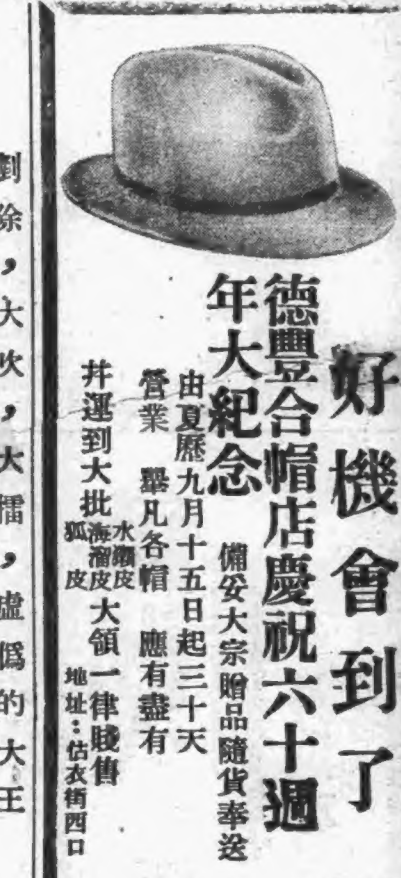 好機會到了
德豐合帽店慶祝六十週
年大紀念
備妥大宗贈品隨貨奉送
由夏歷九月十五日起三十天
營業 舉凡各帽 應有盡有
幷運到大批
水獺皮
海溜皮
狐皮
大領一律賤售
地址：估衣街西口
剷除，大吹，大擂，虛僞的大王